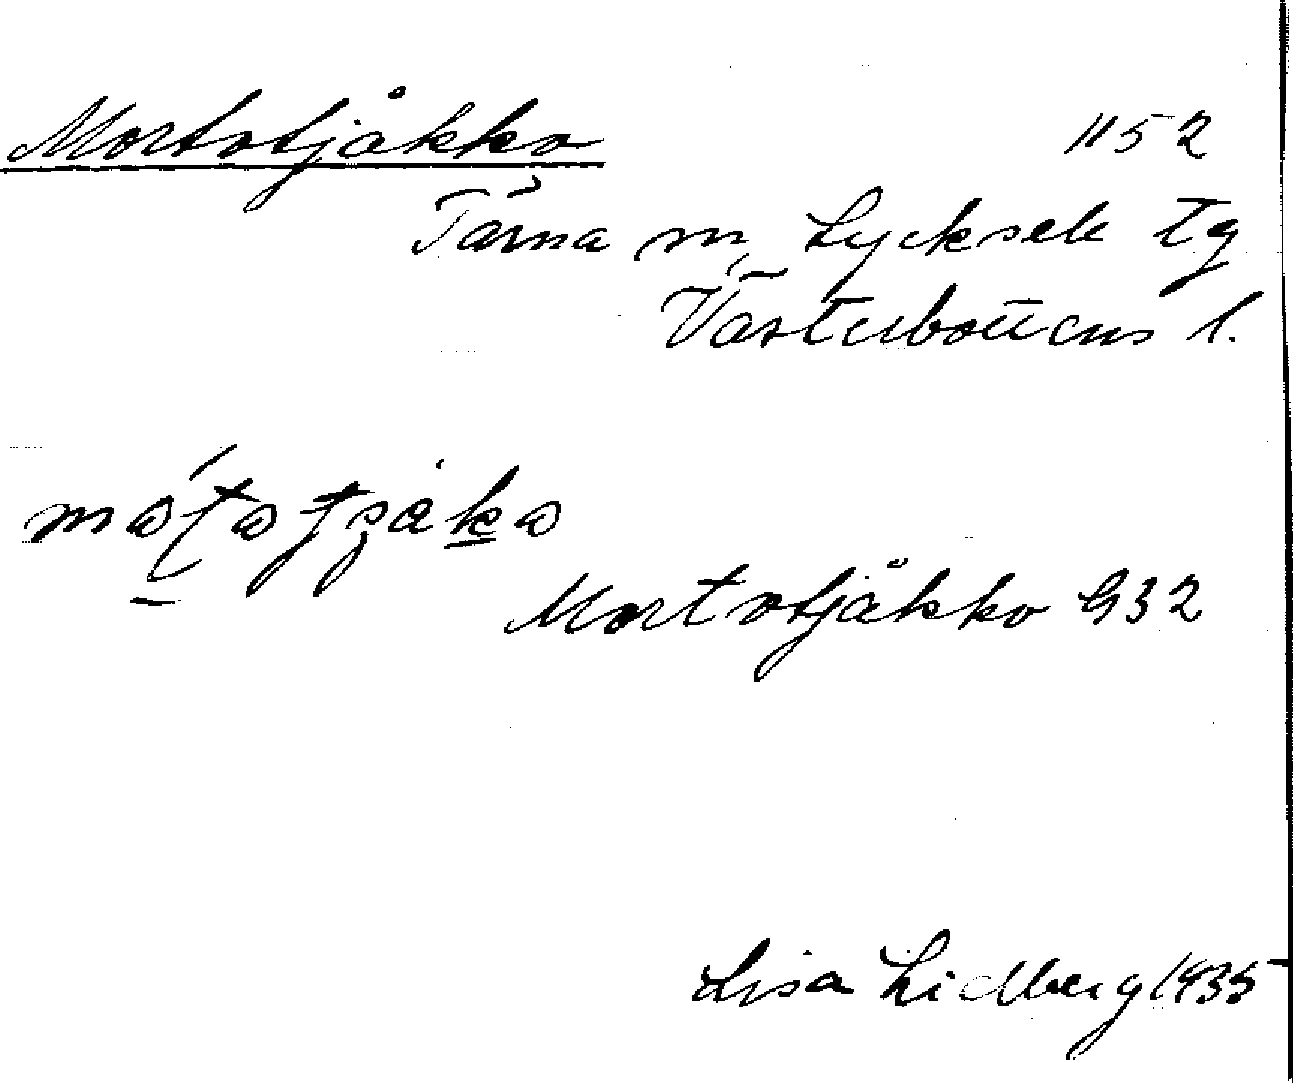 Mortotjåkko 1152
Tärna sn, Lycksele tg
Västerbottens l.
Mortotjåkko G32
Lisa Lidberg 1935